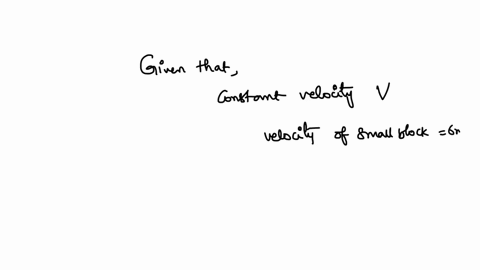 Given that,
constant velocity V
velocity of small block = 6m